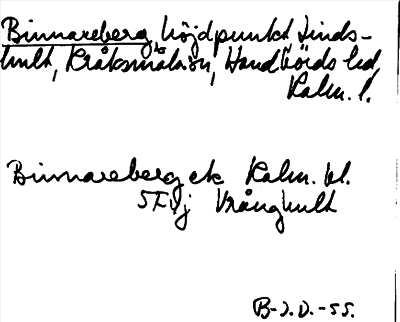 Binnareberg, höjdpunkt Linds-
hult, Kråksmåla sn, Handbörds hd,
Kalm. l.
Binnareberg ek Kalm. bl.
5 F Vrånghult
B-J.O.-55.